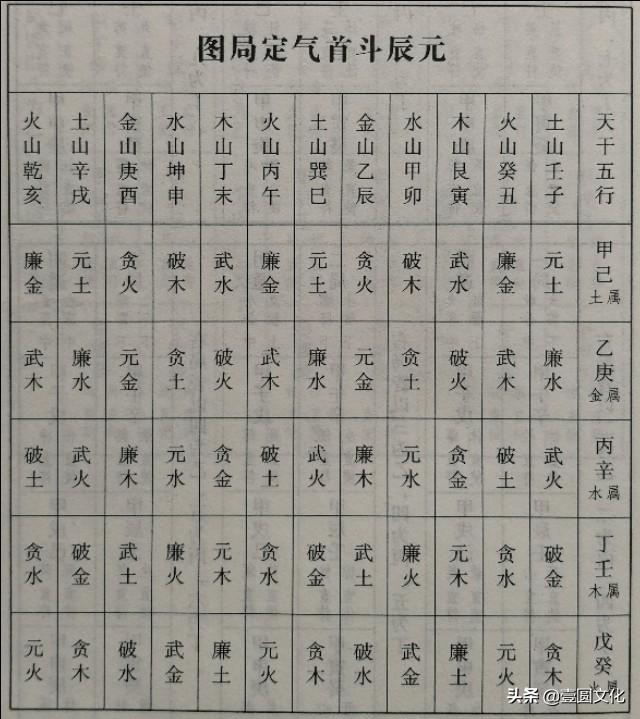 元辰斗首气定局图
天干五行 甲己属土 乙庚属金 丙辛属水 丁壬属木 戊癸属火
土山壬子 元土 廉水 武火 破金 贪木
火山癸丑 廉金 武木 破土 贪水 元火
木山艮寅 武水 破火 贪金 元木 廉土
水山甲卯 破木 贪土 元水 廉火 武金
金山乙辰 贪火 元金 廉木 武土 破水
土山巽巳 元土 廉水 武火 破金 贪木
火山丙午 廉金 武木 破土 贪水 元火
木山丁末 武水 破火 贪金 元木 廉土
水山坤申 破木 贪土 元水 廉火 武金
金山庚酉 贪火 元金 廉木 武土 破水
土山辛戌 元土 廉水 武火 破金 贪木
火山乾亥 廉金 武木 破土 贪水 元火
头条 @壹圆文化